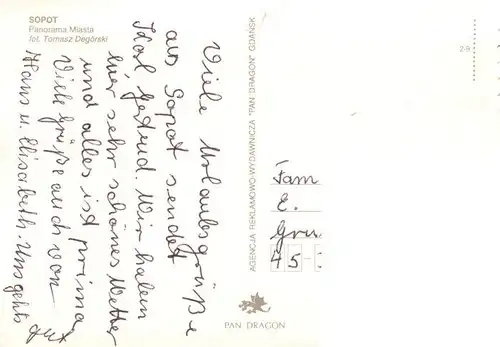 SOPOT
Panorama Miasta
fot. Tomasz Degórski
Viele Urlaubsgrüße
aus Sopot sendet
Karl Gertrud. Wir haben
hier sehr schönes Wetter
und alles ist prima,
Viele Grüße auch von
Hans u. Elisabeth. Uns gehts gut
AGENCJA REKLAMOWO-WYDAWNICZA "PAN DRAGON" GDAŃSK
PAN DRAGON
2-9
Fam
E.
Gru
45-